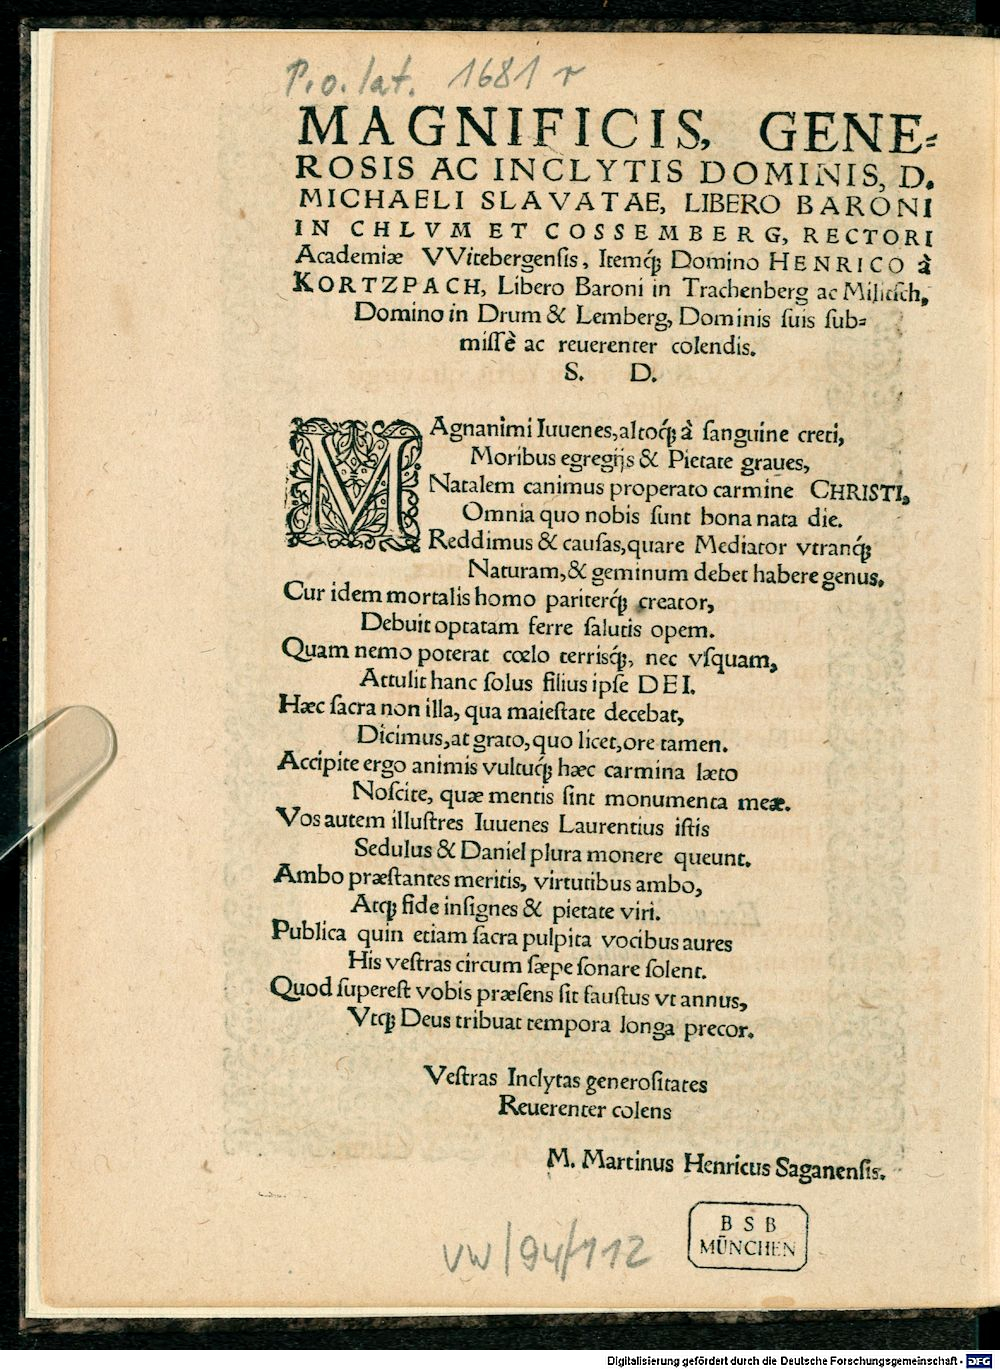 P.o.lat. 1681 r
MAGNIFICIS, GENE=
ROSIS AC INCLYTIS DOMINIS, D.
MICHAELI SLAVATAE, LIBERO BARONI
IN CHLVM ET COSSEMBERG, RECTORI
Academiæ VVitebergensis, Itemq́; Domino HENRICO à
KORTZPACH, Libero Baroni in Trachenberg ac Militsch,
Domino in Drum & Lemberg, Dominis suis sub=
missè ac reuerenter colendis.
S. D.
MAgnanimi Iuuenes, altoq́; à sanguine creti,
Moribus egregijs & Pietate graues,
Natalem canimus properato carmine CHRISTI,
Omnia quo nobis sunt bona nata die.
Reddimus & causas, quare Mediator vtranq́;
Naturam, & geminum debet habere genus.
Cur idem mortalis homo pariterq́; creator,
Debuit optatam ferre salutis opem.
Quam nemo poterat cœlo terrisq́;, nec vsquam,
Attulit hanc solus filius ipse DEI.
Hæc sacra non illa, qua maiestate decebat,
Dicimus, at grato, quo licet, ore tamen.
Accipite ergo animis vultuq́; hæc carmina læto
Noscite, quæ mentis sint monumenta meæ.
Vos autem illustres Iuuenes Laurentius istis
Sedulus & Daniel plura monere queunt.
Ambo præstantes meritis, virtutibus ambo,
Atq; fide insignes & pietate viri.
Publica quin etiam sacra pulpita vocibus aures
His vestras circum sæpe sonare solent.
Quod superest vobis præsens sit faustus vt annus,
Vtq; Deus tribuat tempora longa precor.
Vestras Inclytas generositates
Reuerenter colens
M. Martinus Henricus Saganensis.
BSB
MÜNCHEN
VW/94/112
Digitalisierung gefördert durch die Deutsche Forschungsgemeinschaft - DFG